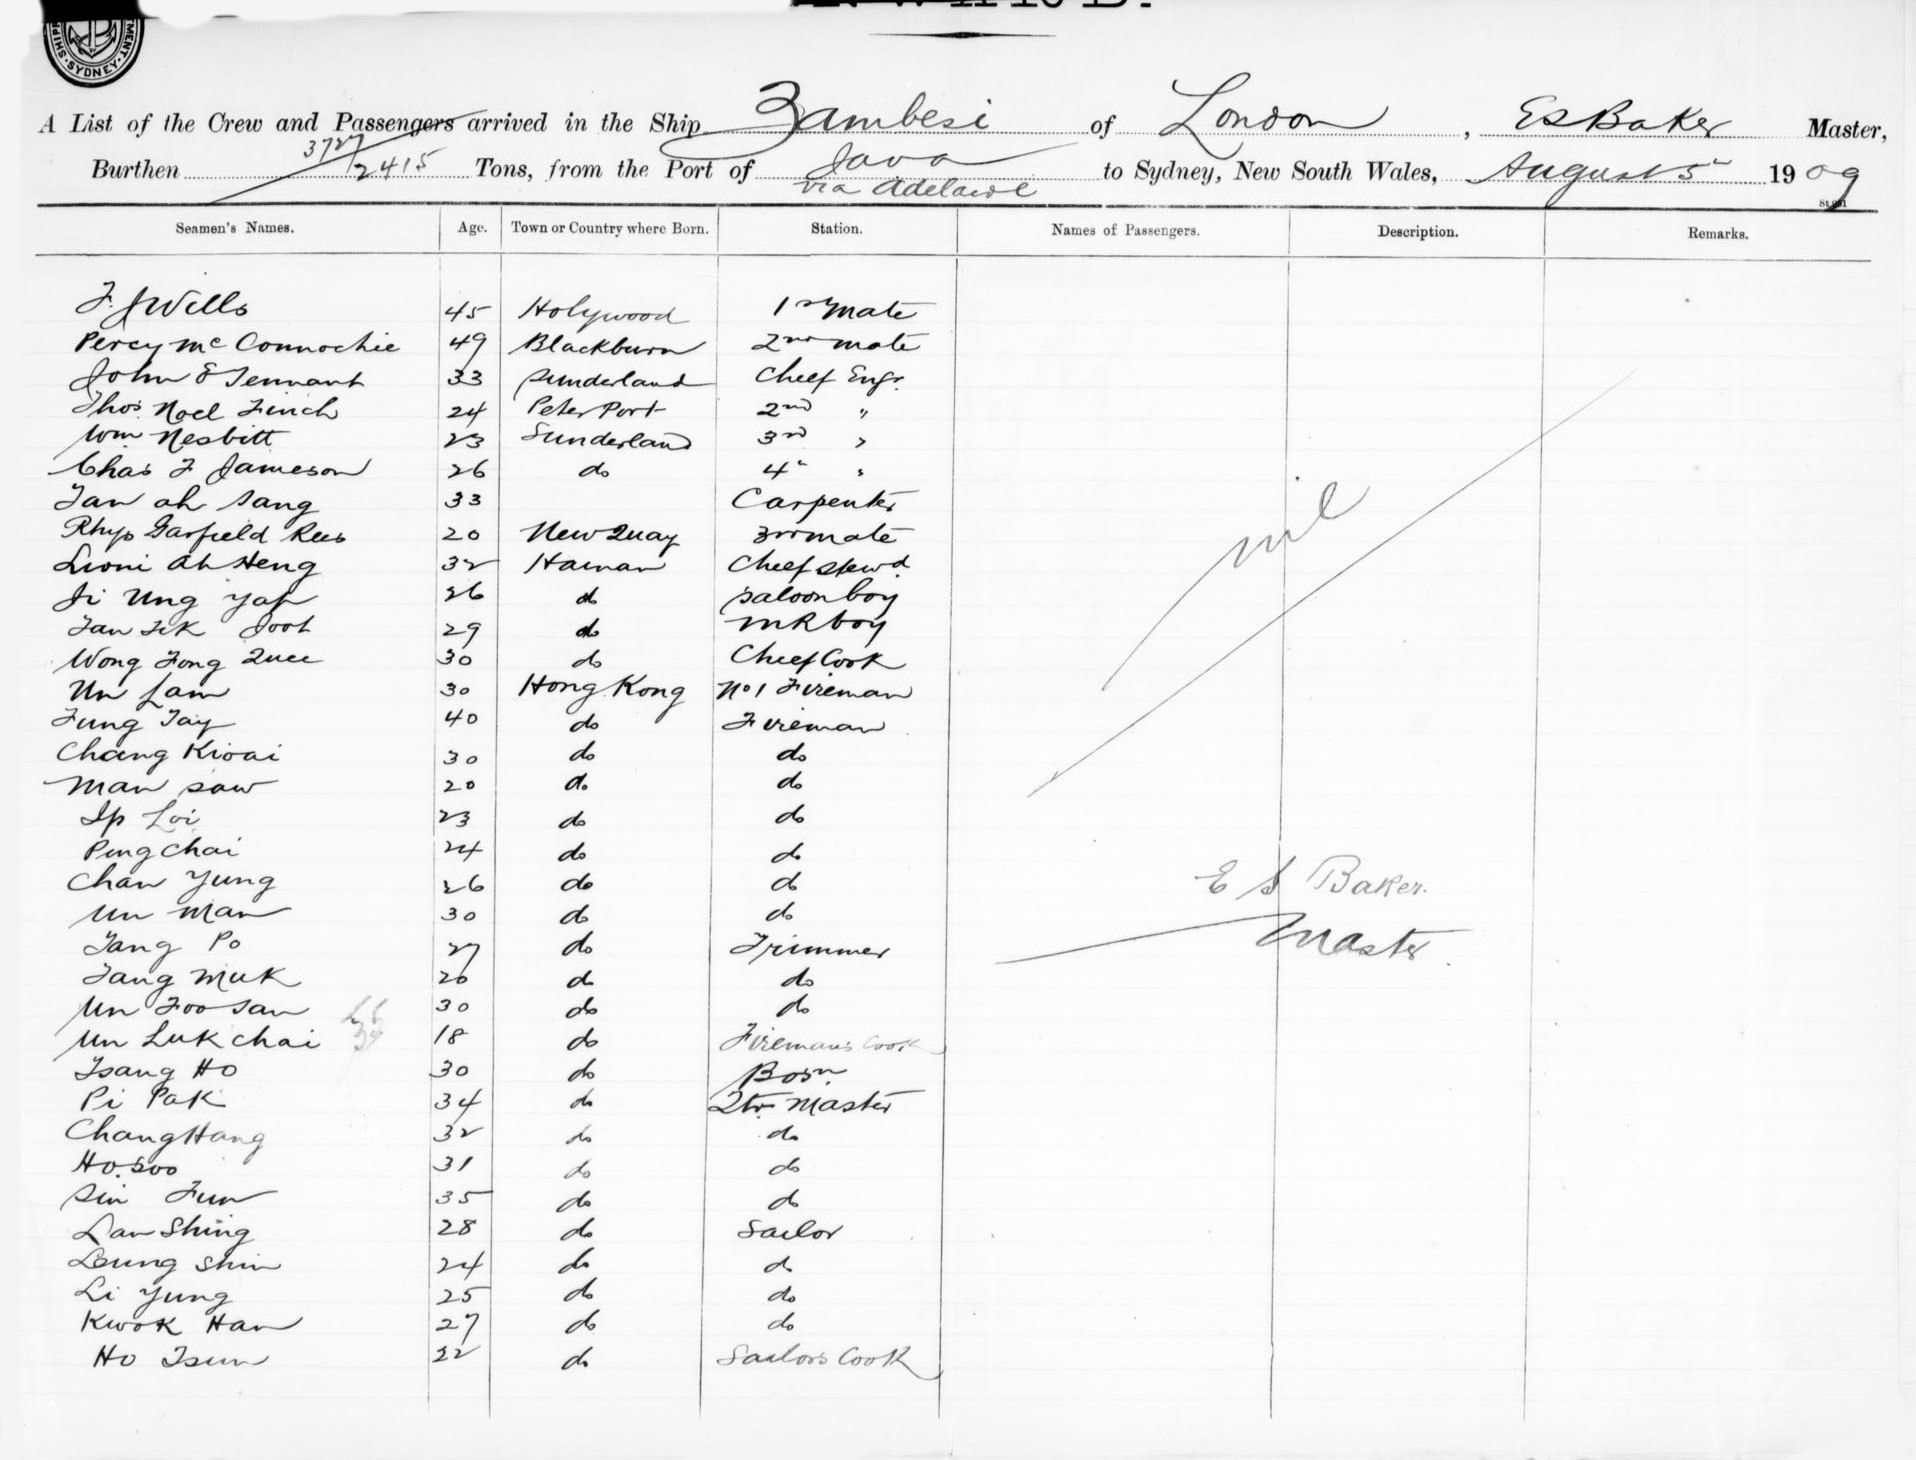 SYDNEY
A List of the Crew and Passengers arrived in the Ship Zambesi of London, E S Baker Master,
Burthen 3727/2415 Tons, from the Port of Java via Adelaide to Sydney, New South Wales, August 5" 1909
Seamen's Names. Age. Town or Country where Born. Station. Names of Passengers. Description. Remarks.
F. J Wells 45 Holywood 1st Mate
Percy Mc Connochie 49 Blackburn 2nd mate
John E Tennant 33 Sunderland Cheef Engr.
Thos Noel Finch 24 Peter Port 2nd "
Wm Nesbitt 23 Sunderland 3rd "
Chas F Jameson 26 do 4" "
Tan ah Sang 33 Carpenter
Rhys Garfield Rees 20 New Quay 3rd mate
Ah Heng 32 Hainan Cheef Stewd.
Ung Yap 26 do Saloon boy
Tan 29 do M R boy
Wong Fong Quee 30 do Cheef Cook
Un Lam 30 Hong Kong No 1 Fireman
Fung Tay 40 do Fireman
Chang 30 do do
Man Saw 20 do do
Ip Loi 23 do do
Ping Chai 24 do do
Chan Yung 26 do do
Un Man 30 do do
Tang Po 27 do Trimmer
Tang Muk 20 do do
Un Foo San 30 do do
Un Luk Chai 18 do Fireman's Cook
Tsang Ho 30 do Bosn.
Pi Pak 34 do Qtr. Master
Chang Hang 32 do do
Ho Soo 31 do do
Sin Fun 35 do do
Lau Shing 28 do Sailor
Leung Shin 24 do do
Li Yung 25 do do
Kwok Han 27 do do
Ho Tsun 22 do Sailors Cook
nil
E S Baker
Master